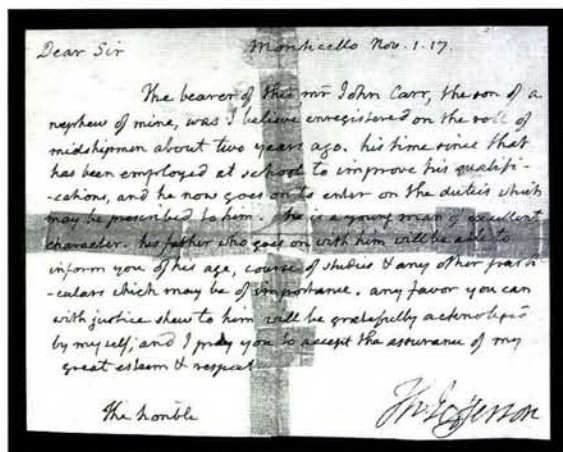 Dear Sir Monticello Nov. 1. 17.
The bearer of this mr John Carr, the son of a
nephew of mine, was I believe enregistered on the roll of
midshipmen about two years ago. his time since that
has been employed at school to improve his qualifi-
-cations, and he now goes on to enter on the duties which
may be prescribed to him. he is a young man of excellent
character. his father who goes on with him will be able to
inform you of his age, course of studies & any other parti-
-culars which may be of importance. any favor you can
with justice shew to him will be gratefully acknoleged
by myself; and I pray you to accept the assurance of my
great esteem & respect
Th: Jefferson
The honble